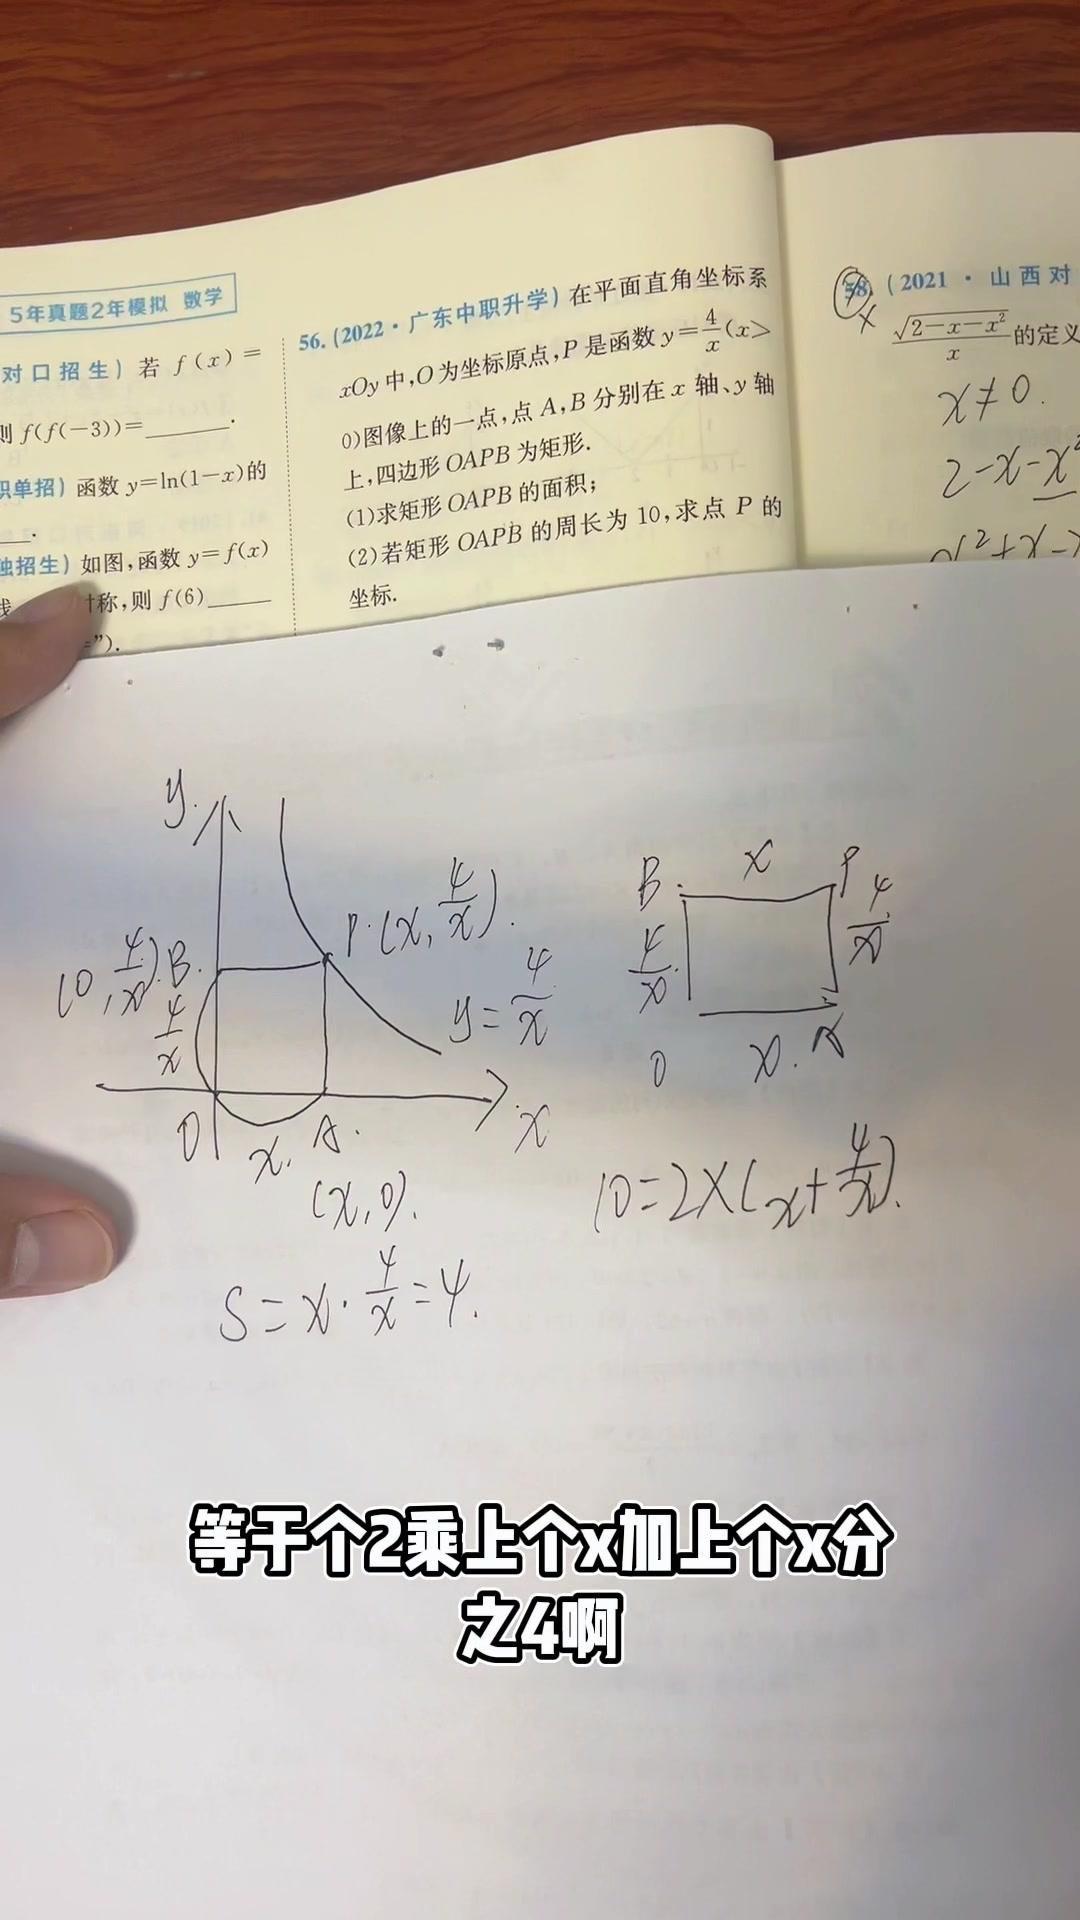 5年真题2年模拟 数学
对口招生) 若 f(x)=
则 f(f(-3))=______.
职单招) 函数 y=ln(1-x)的
____.
独招生) 如图,函数 y=f(x)
对称,则 f(6)____
").
56. (2022·广东中职升学) 在平面直角坐标系
xOy 中,O 为坐标原点,P 是函数 y=4/x (x>
0)图像上的一点,点 A,B 分别在 x 轴、y 轴
上,四边形 OAPB 为矩形.
(1)求矩形 OAPB 的面积;
(2)若矩形 OAPB 的周长为 10,求点 P 的
坐标.
58. (2021·山西对
√(2-x-x²)/x 的定义
x≠0.
2-x-x²
y.
P.(x, 4/x).
(0, 4/x).B.
4/x
y=4/x
O
x.
A.
x
(x,0).
S=x·4/x=4.
B.
x
P
4/x
4/x
O
x.
A
10=2×(x+4/x).
等于个2乘上个x加上个x分
之4啊